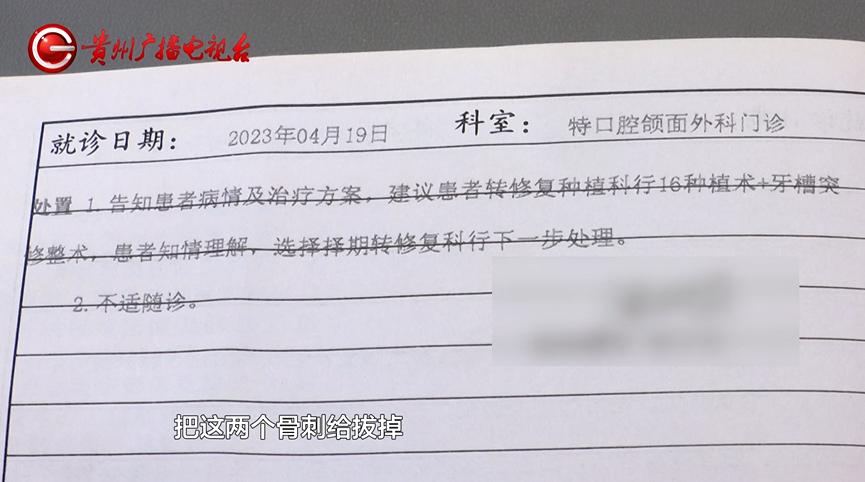 贵州广播电视台
就诊日期： 2023年04月19日 科室： 特口腔颌面外科门诊
处置 1.告知患者病情及治疗方案，建议患者转修复种植科行16种植术+牙槽突
修整术，患者知情理解，选择择期转修复科行下一步处理。
2.不适随诊。
把这两个骨刺给拔掉